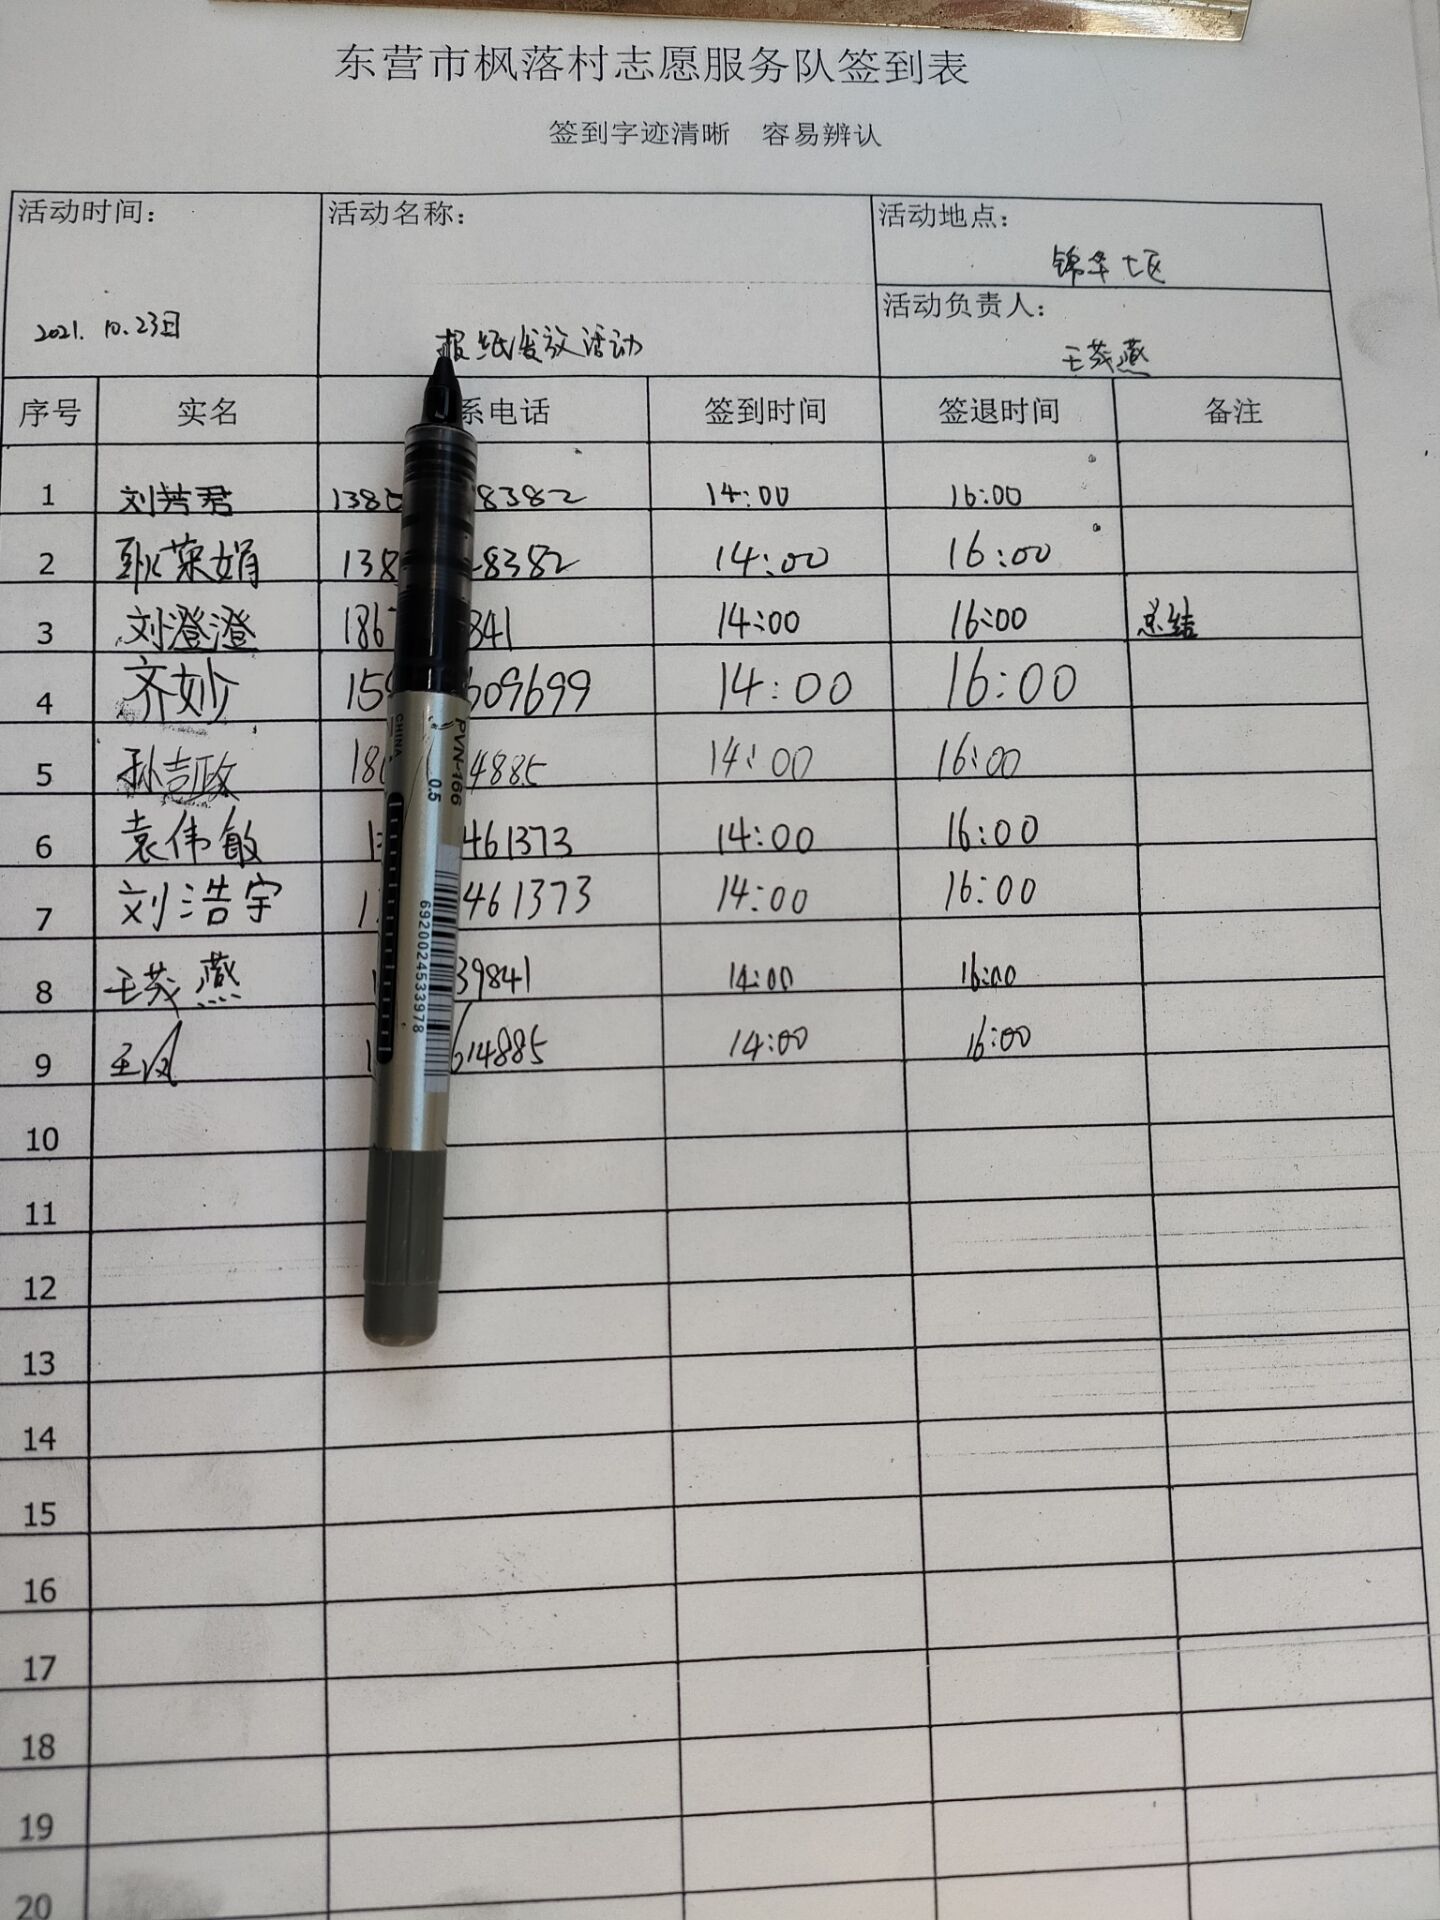 东营市枫落村志愿服务队签到表
签到字迹清晰 容易辨认
活动时间： 活动名称： 活动地点：
锦华七区
活动负责人：
2021. 10. 23日 报纸发放活动 王茂燕
序号 实名 系电话 签到时间 签退时间 备注
1 刘芳君 138 8382 14:00 16:00
2 耿荣娟 138 8382 14:00 16:00
3 刘澄澄 186 841 14:00 16:00 总结
4 齐妙 15 609699 14:00 16:00
5 孙志政 18 4885 14:00 16:00
6 袁伟敏 1 461373 14:00 16:00
7 刘浩宇 1 461373 14:00 16:00
8 王茂燕 1 39841 14:00 16:00
9 王 1 614885 14:00 16:00
10
11
12
13
14
15
16
17
18
19
20
PVN-166
0.5
CHINA
6920024533978